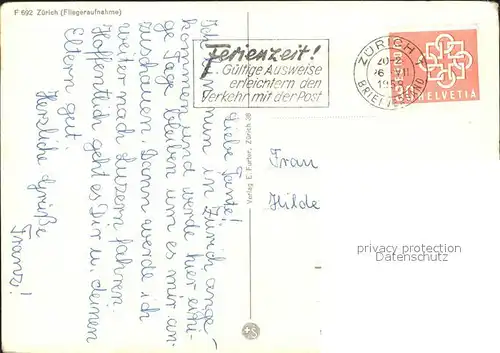 F 692 Zürich (Fliegeraufnahme)
Liebe Tante!
Ich nun in Zürich ange
kommen und werde hier eini-
ge Tage bleiben um es mir an-
zuschauen. Dann werde ich
weiter nach Luzern fahren.
Hoffentlich geht es Dir u. deinen
Eltern gut.
Herzliche Grüße
Franz!
Verlag E. Furter, Zürich 38
Ferienzeit!
Gültige Ausweise
erleichtern den
Verkehr mit der Post
ZÜRICH
BRIEFVERSAND
HELVETIA
Frau
Hilde
privacy protection
Datenschutz